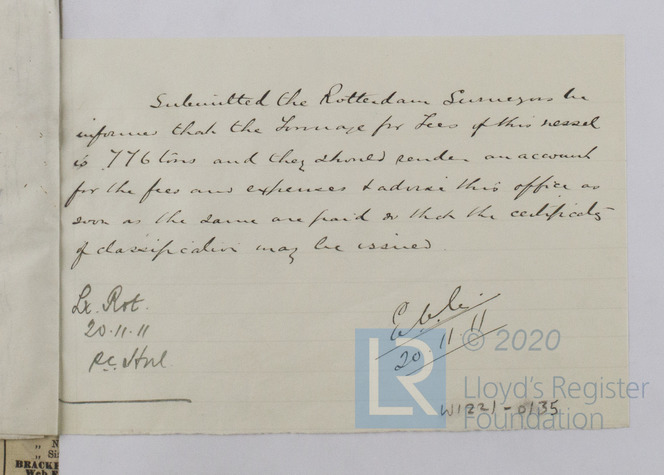 Submitted the Rotterdam Surveyors be
informed that the Tonnage for Fees of this vessel
is 776 tons and they should render an account
for the fees and expenses & advise this office as
soon as the same are paid so that the certificate
of classification may be issued
Lr. Rot.
20.11.11
20.11.11
© 2020
LR
Lloyd's Register
Foundation
W1221-0135
„ N
„ Si
BRACKE
Web F